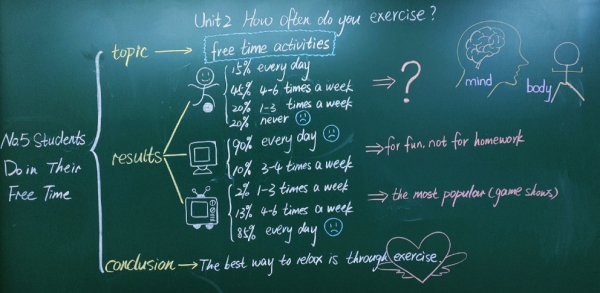 Unit 2 How often do you exercise?
topic → free time activities
No.5 Students
Do in Their
Free Time
results
15% every day
45% 4-6 times a week
20% 1-3 times a week
20% never
⇒ ?
mind
body
90% every day
10% 3-4 times a week
⇒ for fun, not for homework
2% 1-3 times a week
13% 4-6 times a week
85% every day
⇒ the most popular (game shows)
conclusion → The best way to relax is through exercise.